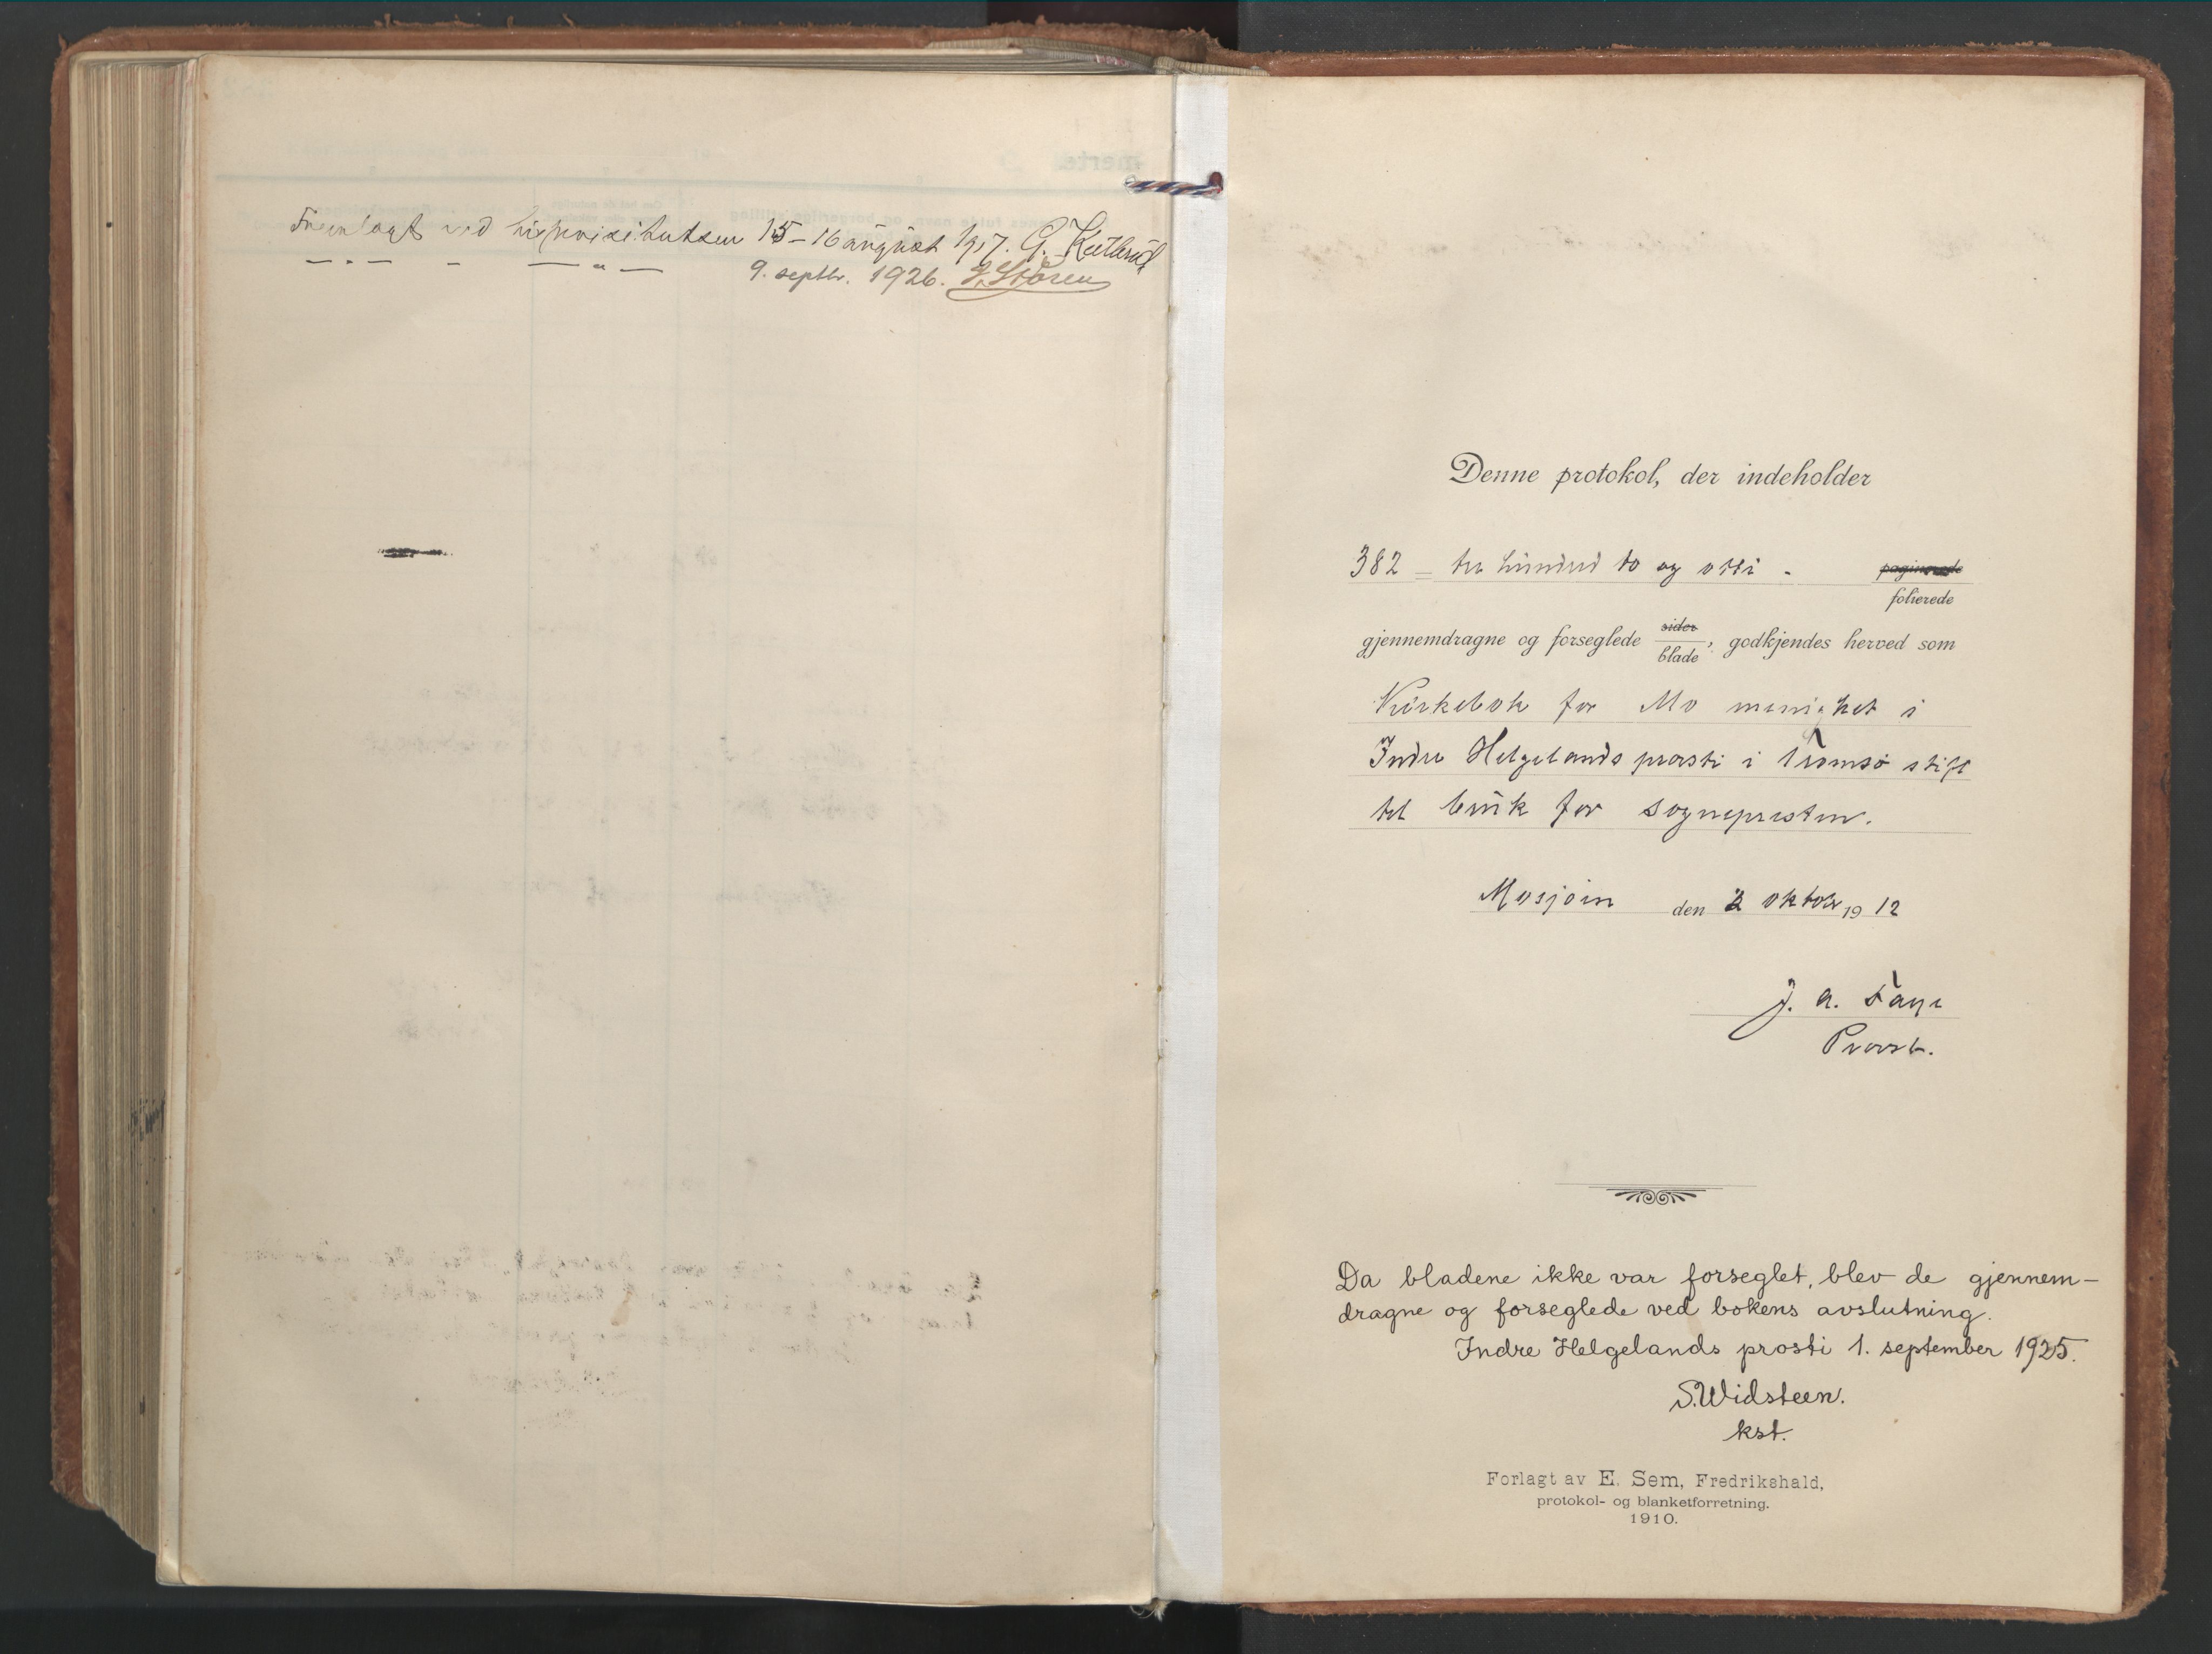 Fremlagt ved bispevisitatsen 15-16 august 1917. G.
— " — - — " — 9. septbr. 1926. J. Støren
Denne protokol, der indeholder
382 = tre hundred to og otti - paginerede
folierede
gjennemdragne og forseglede sider
blade, godkjendes herved som
Kirkebok for Mo menighet i
Indre Helgelands prosti i Tromsø stift
til bruk for sognepresten.
Mosjøen den 2 oktobr 1912
J. A. Faye
Provst.
Da bladene ikke var forseglet, blev de gjennem-
dragne og forseglede ved bokens avslutning.
Indre Helgelands prosti 1. september 1925.
S. Widsteen.
kst.
Forlagt av E. Sem, Fredrikshald,
protokol- og blanketforretning.
1910.